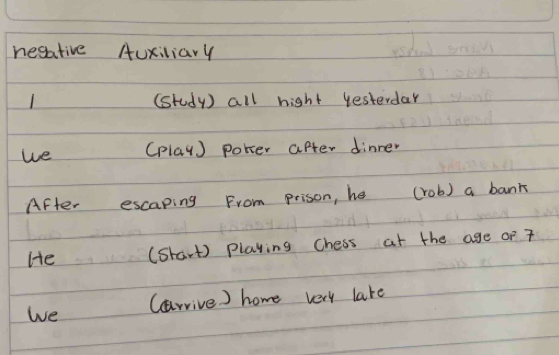 negative Auxiliary
I (study) all night yesterday
We (Play) Poker after dinner
After escaping From prison, he (rob) a bank
He (Start) Playing Chess at the age of 7
We (arrive) home very late